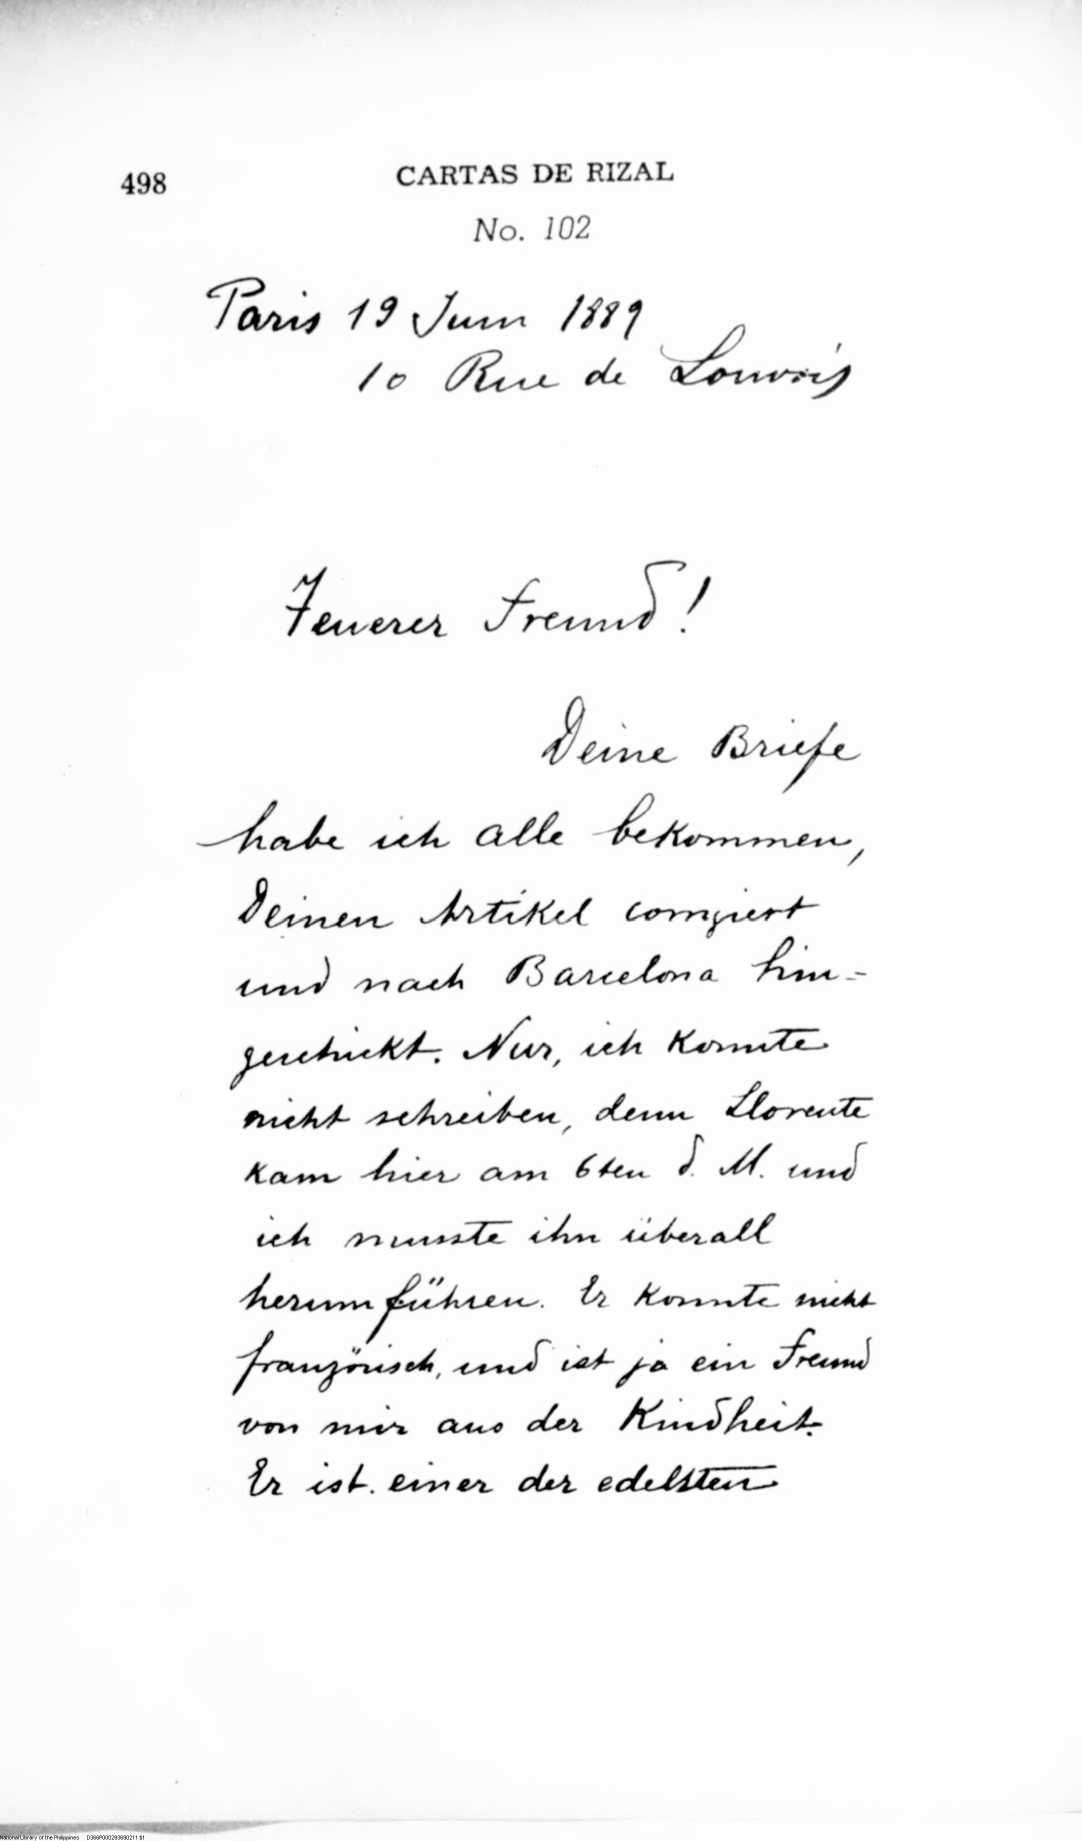 498
CARTAS DE RIZAL
No. 102
Paris 19 Juni 1889
10 Rue de Louvois
Teuerer Freund!
Deine Briefe
habe ich alle bekommen,
Deinen Artikel corrigiert
und nach Barcelona hin-
geschickt. Nur, ich konnte
nicht schreiben, denn Llorente
kam hier am 6ten d. M. und
ich musste ihn überall
herumführen. Er konnte nicht
französisch, und ist ja ein Freund
von mir aus der Kindheit.
Er ist einer der edelsten
National Library of the Philippines